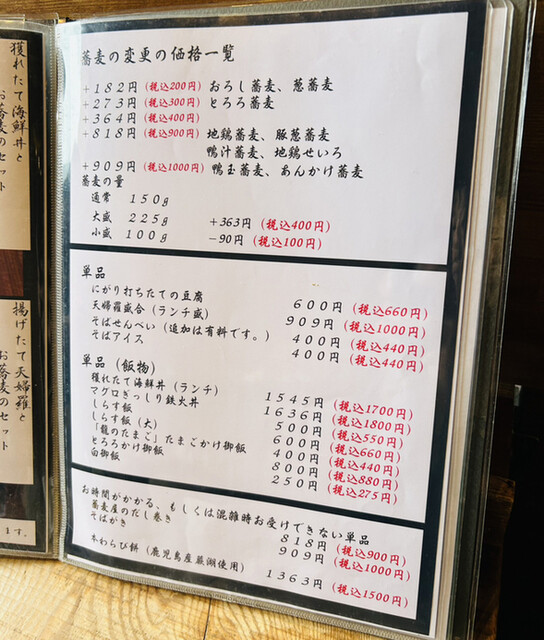 獲れたて海鮮丼と
お蕎麦のセット
揚げたて天婦羅と
お蕎麦のセット
ます。
蕎麦の変更の価格一覧
+182円(税込200円) おろし蕎麦、葱蕎麦
+273円(税込300円) とろろ蕎麦
+364円(税込400円)
+818円(税込900円) 地鶏蕎麦、豚葱蕎麦
鴨汁蕎麦、地鶏せいろ
+909円(税込1000円) 鴨玉蕎麦、あんかけ蕎麦
蕎麦の量
通常 150g
大盛 225g +363円(税込400円)
小盛 100g -90円(税込100円)
単品
にがり打ちたての豆腐 600円(税込660円)
天婦羅盛合(ランチ盛) 909円(税込1000円)
そばせんべい(追加は有料です。) 400円(税込440円)
そばアイス 400円(税込440円)
単品(飯物)
獲れたて海鮮丼(ランチ) 1545円(税込1700円)
マグロぎっしり鉄火丼 1636円(税込1800円)
しらす飯 500円(税込550円)
しらす飯(大) 600円(税込660円)
「龍のたまご」たまごかけ御飯 400円(税込440円)
とろろかけ御飯 800円(税込880円)
白御飯 250円(税込275円)
お時間がかかる、もしくは混雑時お受けできない単品
蕎麦屋のだし巻き 818円(税込900円)
そばがき 909円(税込1000円)
本わらび餅(鹿児島産蕨湖使用) 1363円(税込1500円)